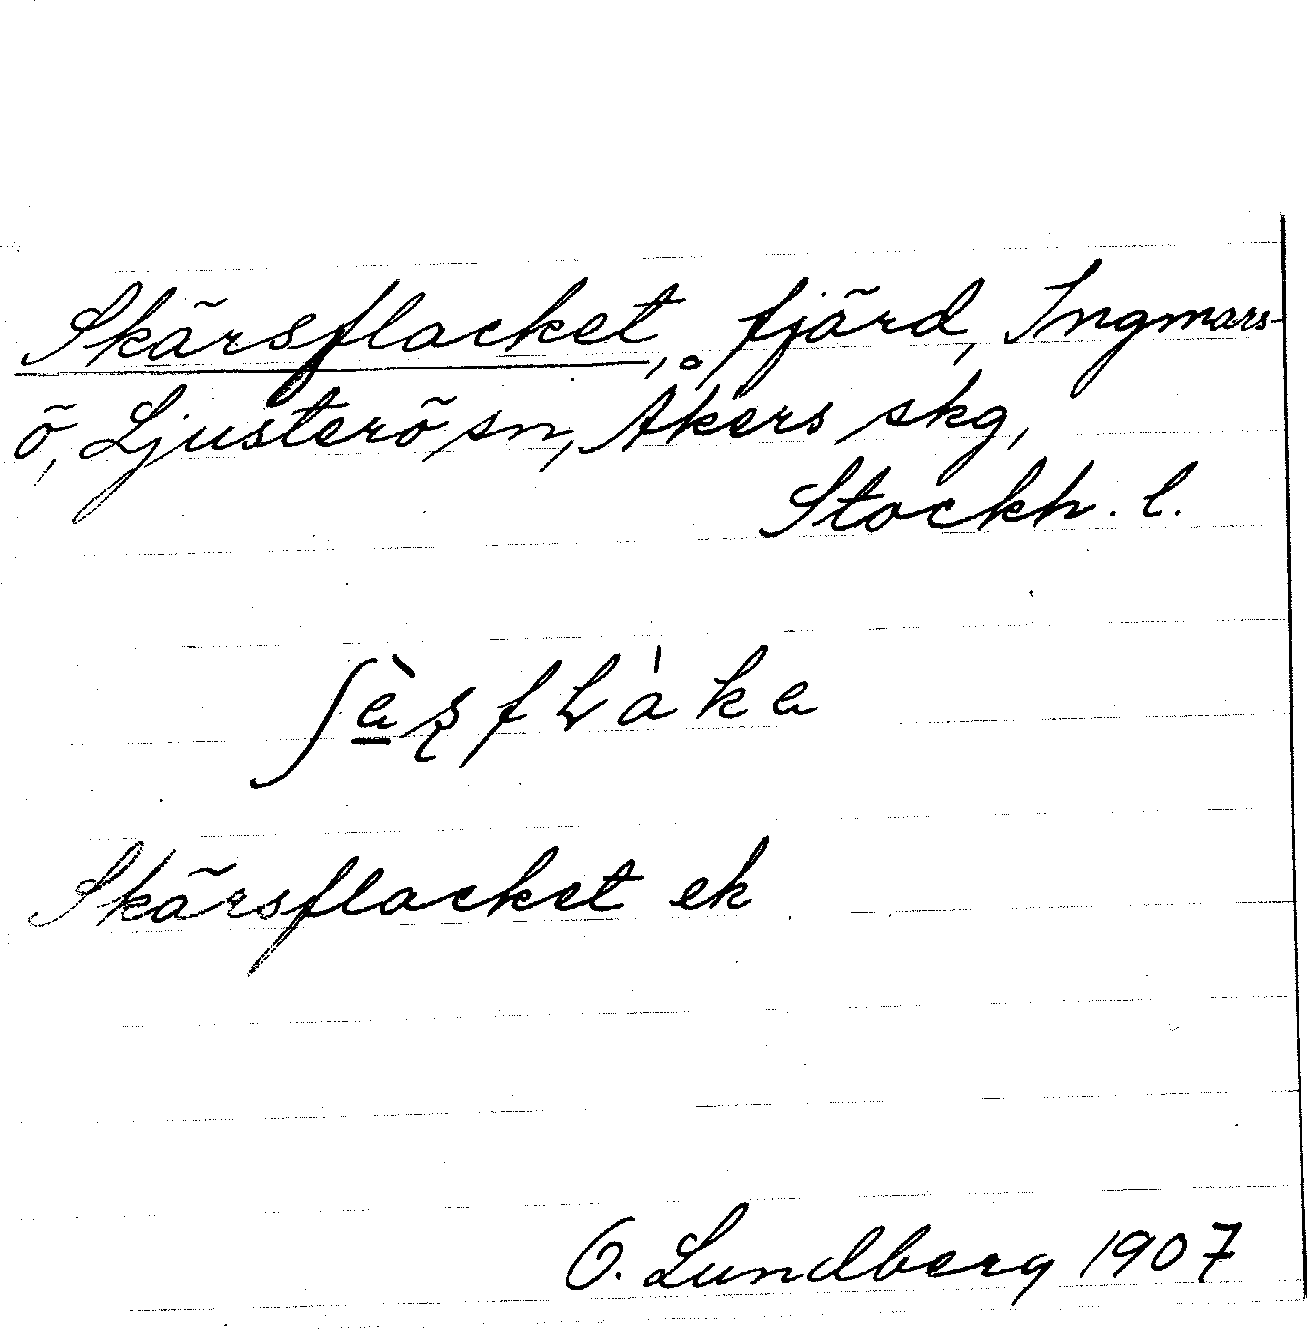 Skärsflacket, fjärd, Ingmars-
ö, Ljusterö sn, Åkers skg,
Stockh. l.
Skärsflacket ek
O. Lundberg 1907